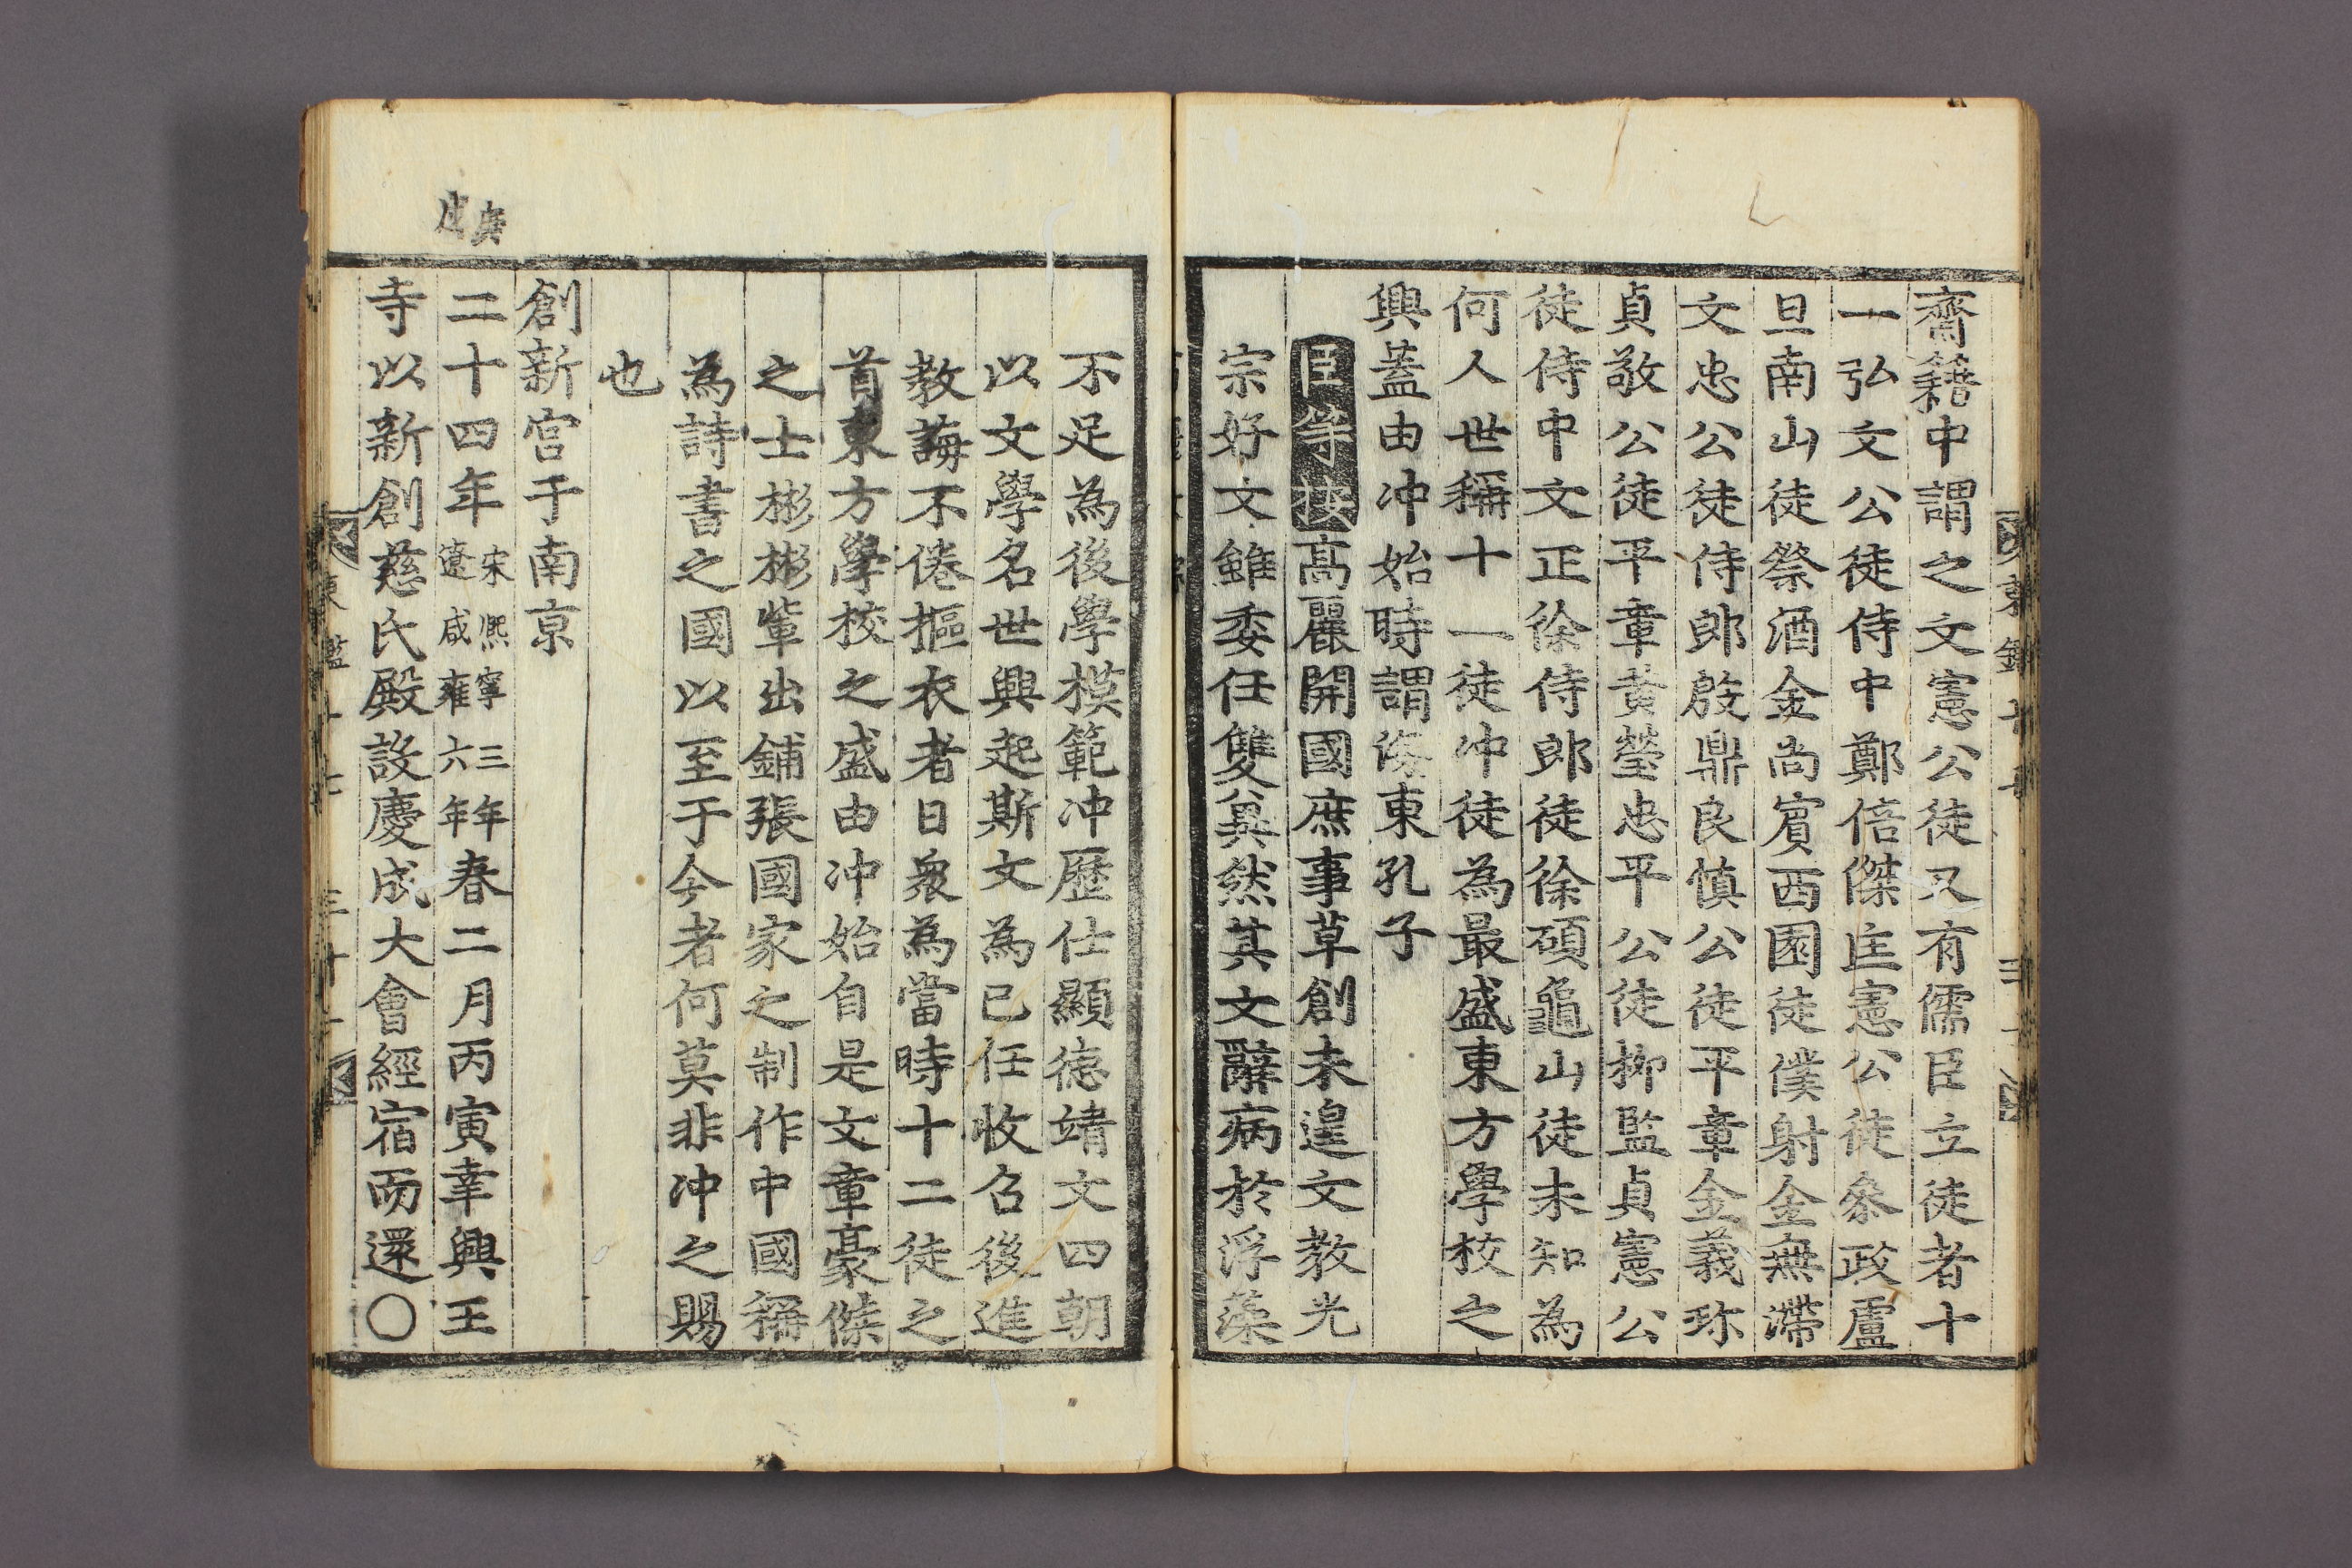 齋籍中謂之文憲公徒又有儒臣立徒者十
一弘文公徒侍中鄭倍傑匡憲公徒叅政盧
旦南山徒祭酒金尚賓西園徒僕射金無滯
文忠公徒侍郎殷鼎良慎公徒平章金義珎
貞敬公徒平章黃瑩忠平公徒柳監貞憲公
徒侍中文正徐侍郎徒徐碩龜山徒未知為
何人世稱十一徒冲徒為最盛東方學校之
興蓋由冲始時謂海東孔子
臣等按高麗開國庶事草創未遑文教光
宗好文雖委任雙兾然其文辭病於浮藻
不足為後學模範冲歷仕顯德靖文四朝
以文學名世興起斯文為己任收召後進
教誨不倦摳衣者日衆為當時十二徒之
首東方學校之盛由冲始自是文章豪傑
之士彬彬輩出鋪張國家之制作中國稱
為詩書之國以至于今者何莫非冲之賜
也
創新宮于南京
庚戌
二十四年宋熙寧三年遼咸雍六年春二月丙寅幸興王
寺以新創慈氏殿設慶成大會經宿而還○